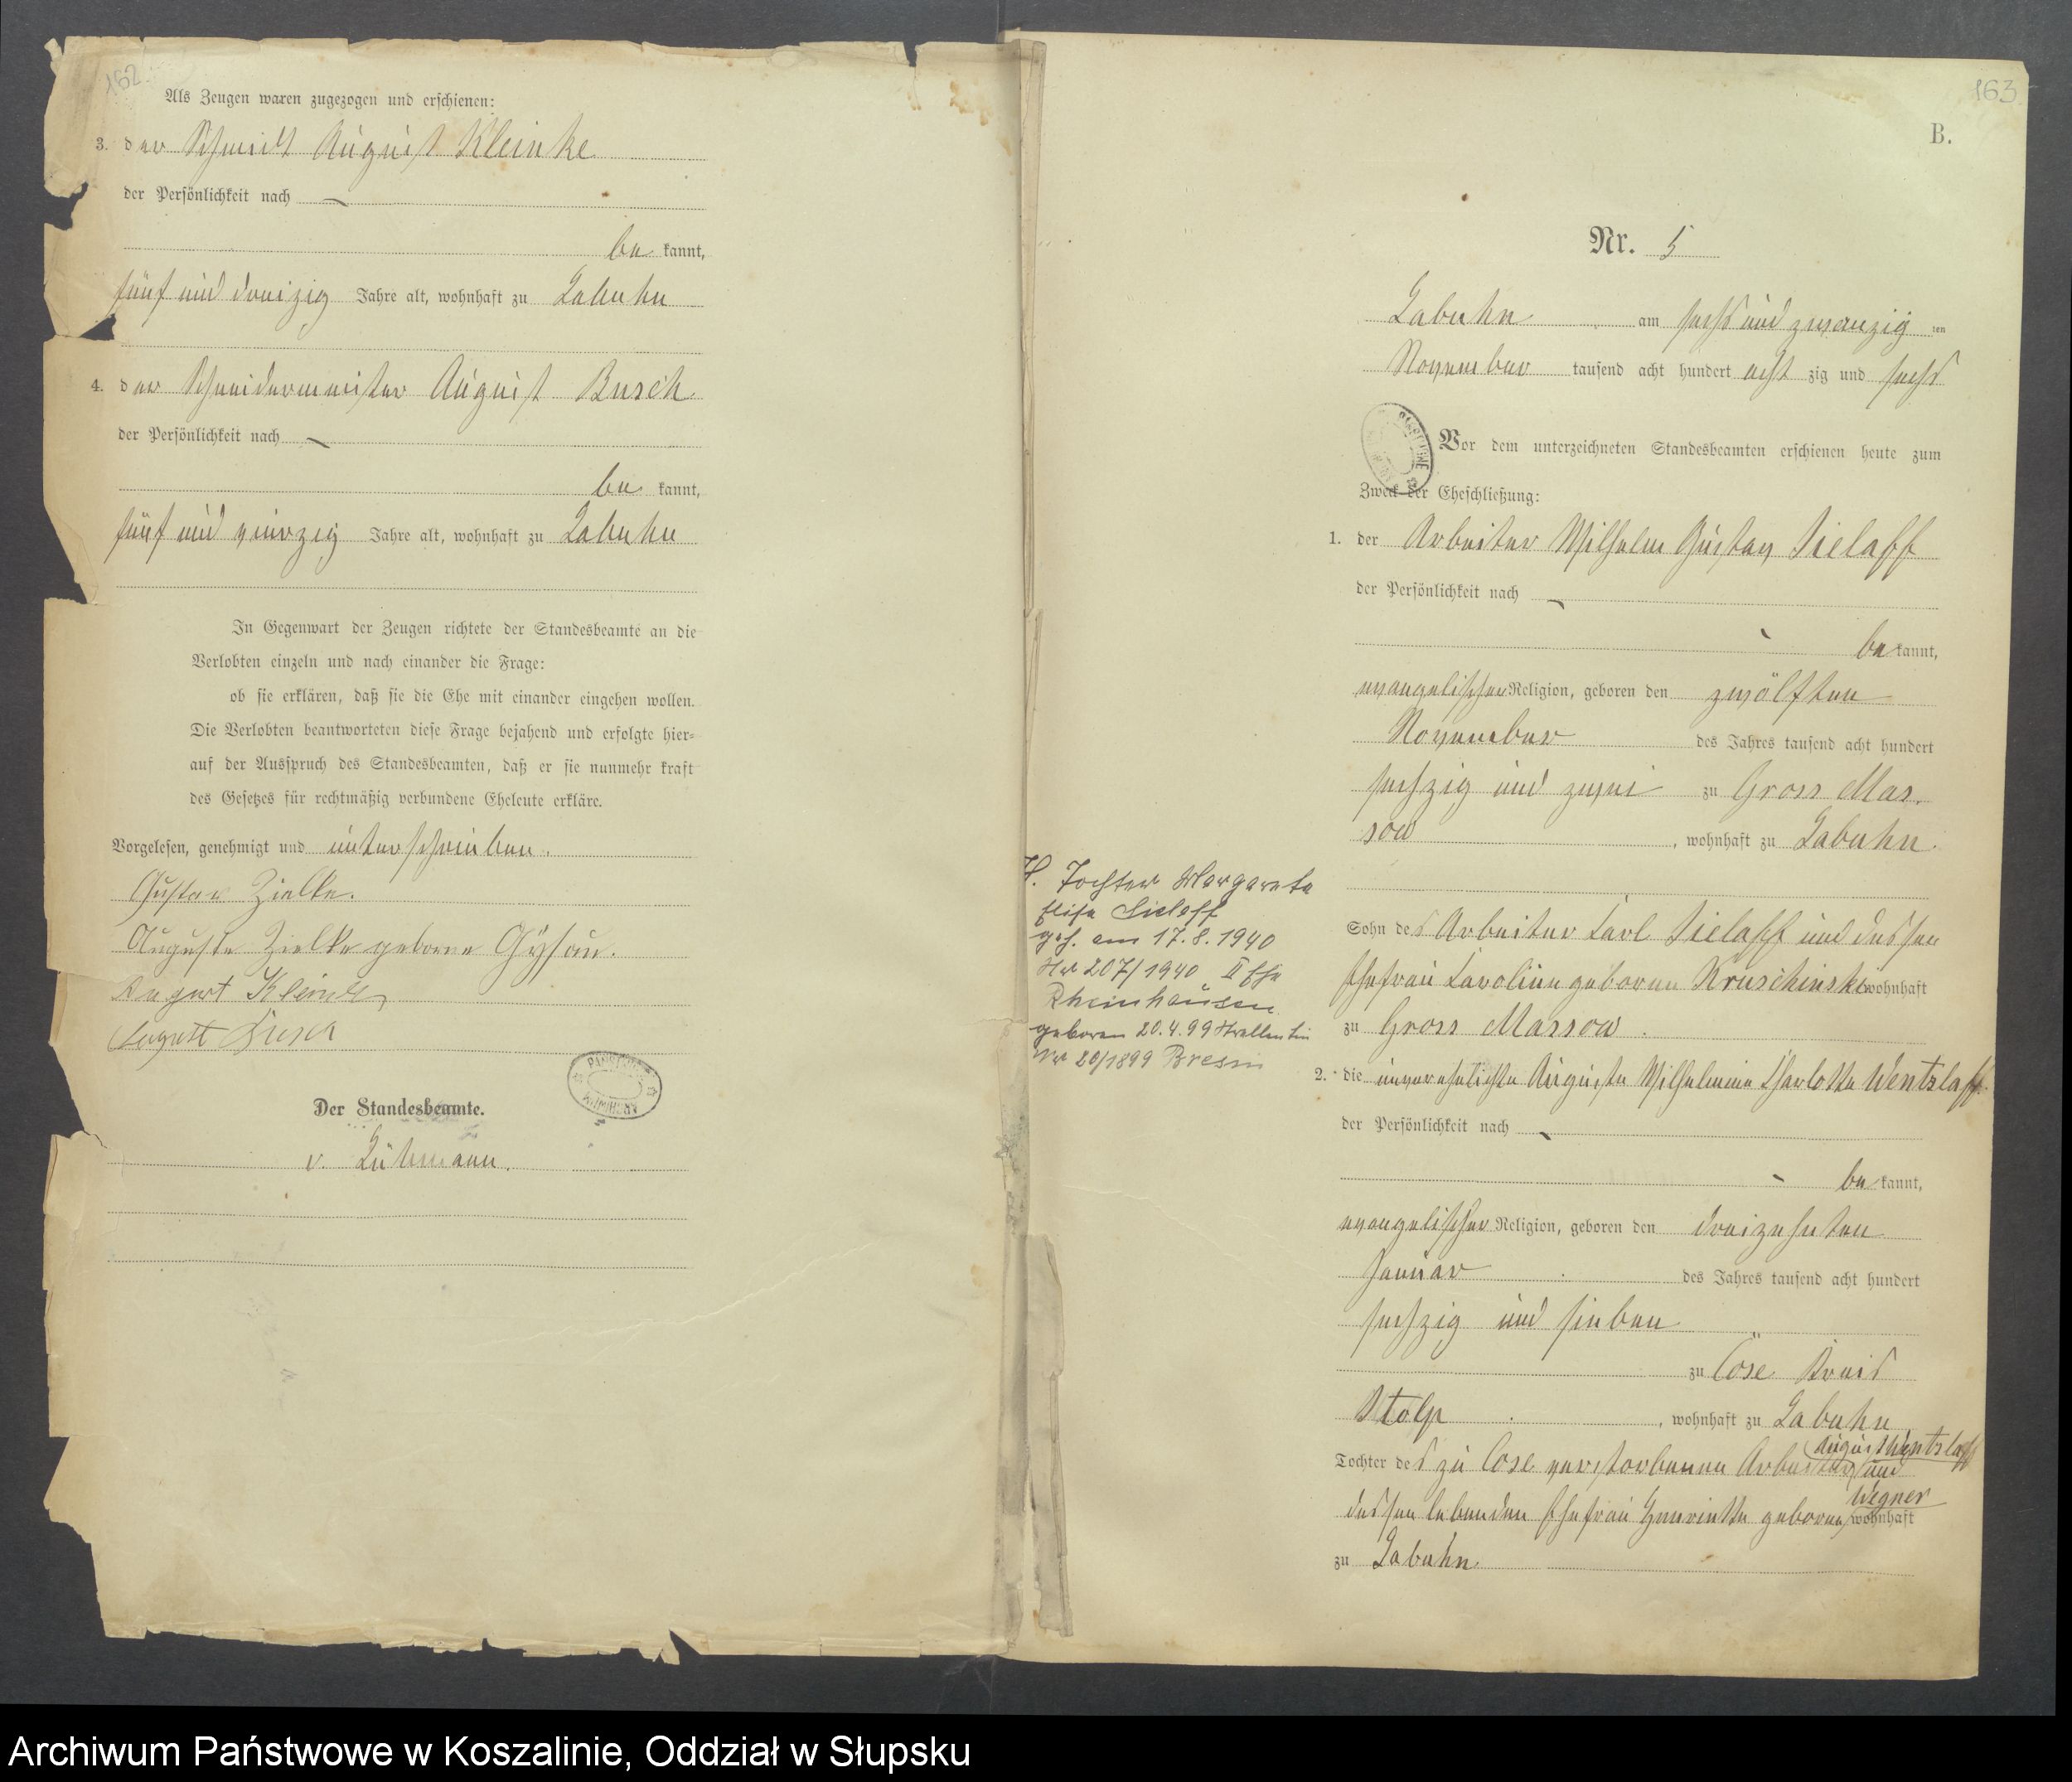 162
Als Zeugen waren zugezogen und erschienen:
3. der Schmidt August Kleinke
der Persönlichkeit nach
be kannt,
fünf und dreizig Jahre alt, wohnhaft zu Labuhn
4. der Schneidermeister August Busch
der Persönlichkeit nach
be kannt,
fünf und vierzig Jahre alt, wohnhaft zu Labuhn
In Gegenwart der Zeugen richtete der Standesbeamte an die
Verlobten einzeln und nach einander die Frage:
ob sie erklären, daß sie die Ehe mit einander eingehen wollen.
Die Verlobten beantworteten diese Frage bejahend und erfolgte hier-
auf der Ausspruch des Standesbeamten, daß er sie nunmehr kraft
des Gesetzes für rechtmäßig verbundene Eheleute erkläre.
Vorgelesen, genehmigt und unterschrieben.
Gustav Zielke.
Auguste Zielke geborne
August Kleinke
August Busch
Der Standesbeamte.
v. Lühmann.
163
B.
Nr. 5
Labuhn am sechs und zwanzig ten
November tausend acht hundert acht zig und sechs
Vor dem unterzeichneten Standesbeamten erschienen heute zum
Zweck der Eheschließung:
1. der Arbeiter Wilhelm Gustav Sielaff
der Persönlichkeit nach
be kannt,
evangelischer Religion, geboren den zwölften
November des Jahres tausend acht hundert
sechzig und zwei zu Gross Mas-
sow, wohnhaft zu Labuhn.
Sohn des Arbeiter Carl Sielaff und dessen
Ehefrau Caroline geborene Kruschinski wohnhaft
zu Gross Massow.
2. die unverehelichte Auguste Wilhelmine Charlotte Wentzlaff
der Persönlichkeit nach
be kannt,
evangelischer Religion, geboren den dreizehnten
Januar des Jahres tausend acht hundert
sechzig und sieben
zu Cose Kreis
Stolp, wohnhaft zu Labuhn
August Wentzlaff
Tochter des zu Cose verstorbenen Arbeiter und
Wegner
dessen lebenden Ehefrau Henriette geborene wohnhaft
zu Labuhn
H. Tochter Margarete
Elise Sielaff
geh. am 17.8.1940
Nr 207/1940 II Ehe
Rheinhausen
geboren 20.4.99
Nr 20/1899 Bresin
Archiwum Państwowe w Koszalinie, Oddział w Słupsku